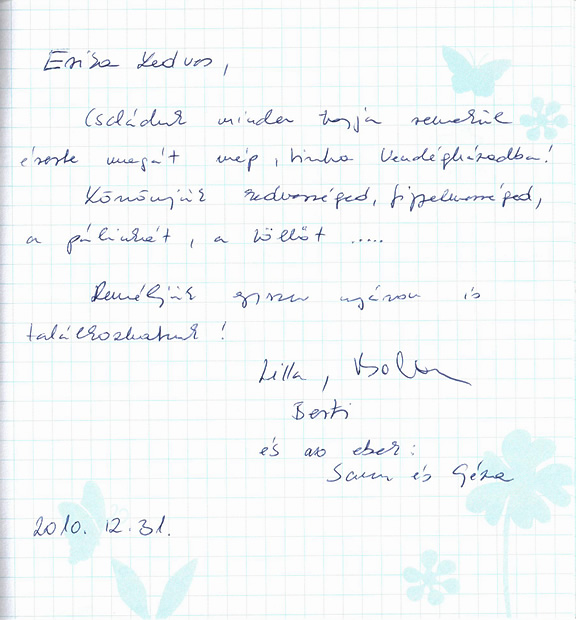 Erika kedves,
Családunk minden tagja remekül
érezte magát szép, tiszta Vendégházadba!
Köszönjük kedvességed, figyelmességed,
a pálinkát, a szőlőt .....
Reméljük egyszer nyáron is
találkozhatunk!
Lilla,
Berti
és az ebek:
Sam és Géza
2010. 12. 31.